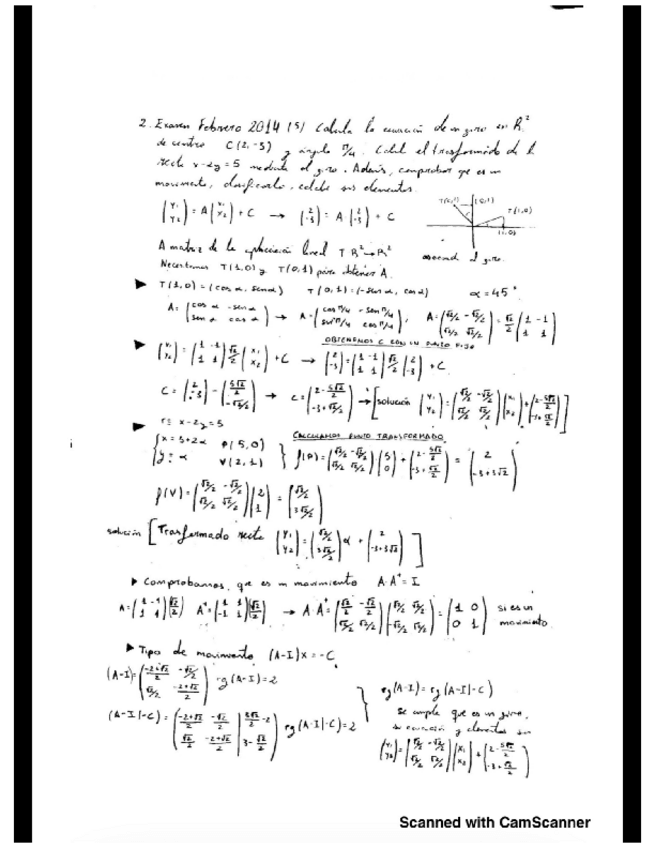 2. Examen Febrero 2014 (5) Calcula la ecuación de un giro en R²
de centro C(2,-3) y ángulo π/4. Calcul el trasformado de l
recta x-2y=5 mediante el giro. Además, comprobar que es un
movimiento, clasificarlo, calcula sus elementos.
(y₁ y₂) = A(x₁ x₂) + C → (2 -3) = A (2 -3) + C
T(0,1) (0,1) T(1,0) (1,0)
A matriz de la aplicación lineal T R²→R² asociada al giro.
Necesitamos T(1,0) y T(0,1) para obtener A.
▶ T(1,0) = (cos α, sen α) T(0,1) = (-sen α, cos α) α = 45°
A = (cos α -sen α / sen α cos α) → A = (cos π/4 -sen π/4 / sen π/4 cos π/4), A = (√2/2 -√2/2 / √2/2 √2/2) = √2/2 (1 -1 / 1 1)
OBTENEMOS C CON UN PUNTO FIJO
▶ (y₁ y₂) = (1 -1 / 1 1) √2/2 (x₁ x₂) + C → (2 -3) = (1 -1 / 1 1) √2/2 (2 -3) + C.
C = (2 -3) - (5√2/2 / -√2/2) → C = (2 - 5√2/2 / -3+√2/2) → [solución (y₁ y₂) = (√2/2 -√2/2 / √2/2 √2/2)(x₁ x₂) + (2 - 5√2/2 / -3+√2/2)]
▶ r ≡ x-2y=5
CALCULAMOS PUNTO TRANSFORMADO
{x = 5+2α / y = α P(5,0) V(2,1) } f(P) = (√2/2 -√2/2 / √2/2 √2/2)(5 0) + (2 - 5√2/2 / -3+√2/2) = (2 / -3+3√2)
f(V) = (√2/2 -√2/2 / √2/2 √2/2)(2 1) = (√2/2 / 3√2/2)
solución [Trasformado recta (y₁ y₂) = (√2/2 / 3√2/2) α + (2 / -3+3√2)]
▶ Comprobamos, que es un movimiento A·Aᵗ = I
A = (1 -1 / 1 1)(√2/2) Aᵗ = (1 1 / -1 1)(√2/2) → A·Aᵗ = (√2/2 -√2/2 / √2/2 √2/2)(√2/2 √2/2 / -√2/2 √2/2) = (1 0 / 0 1) si es un movimiento.
▶ Tipo de movimiento (A-I)x = -C
(A-I) = (-2+√2/2 -√2/2 / √2/2 -2+√2/2) rg(A-I)=2
(A-I|-C) = (-2+√2/2 -√2/2 | 5√2/2 -2 / √2/2 -2+√2/2 | 3-√2/2) rg(A-I|-C)=2
rg(A-I) = rg(A-I|-C)
se cumple que es un giro,
su ecuación y elementos son
(y₁ y₂) = (√2/2 -√2/2 / √2/2 √2/2)(x₁ x₂) + (2 - 5√2/2 / -3+√2/2)
Scanned with CamScanner